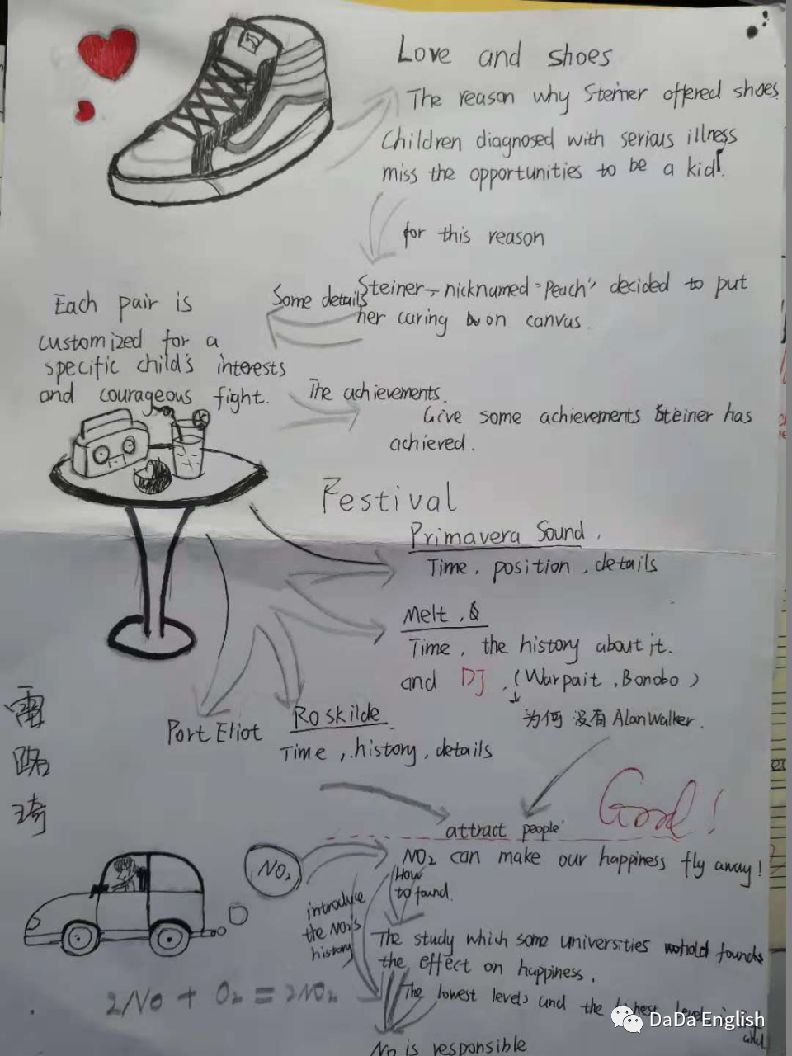 Love and shoes
The reason why Steiner offered shoes
Children diagnosed with serious illness
miss the opportunities to be a kid.
for this reason
Steiner, nicknamed "Peach" decided to put
her caring on canvas.
Some details
Each pair is
customized for a
specific child's interests
and courageous fight.
The achievements.
Give some achievements Steiner has
achieved.
Festival
Primavera Sound.
Time, position, details
Melt, &
Time, the history about it.
and DJ, (Warpait, Bonobo)
为何没有 Alan Walker.
Port Eliot
Roskilde
Time, history, details
雷
璐
琦
Good!
attract people
NO₂
NO₂ can make our happiness fly away!
How
to found.
introduce
the NO₂'s
history
The study which some universities found
the effect on happiness.
The lowest levels and the highest
2NO + O₂ = 2NO₂
is responsible
DaDa English